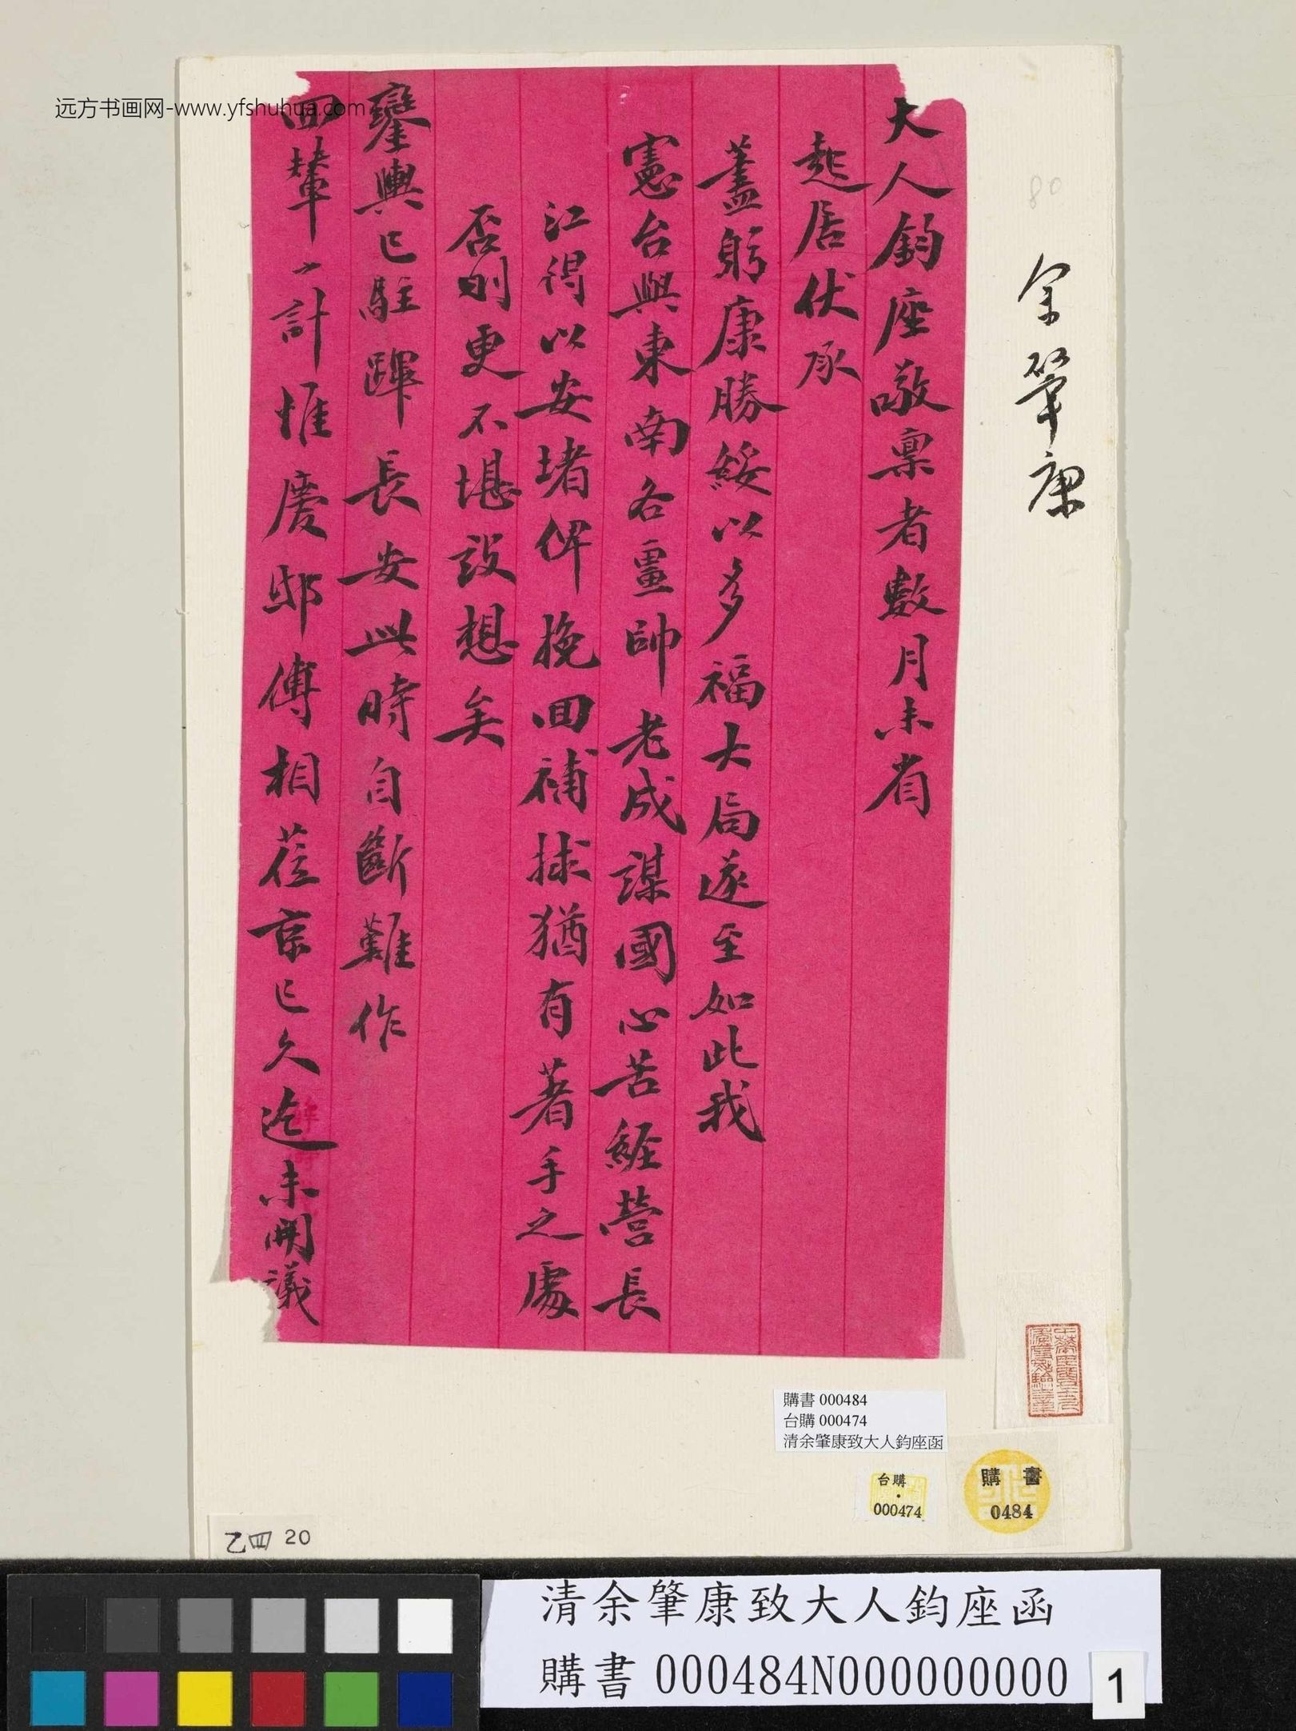 远方书画网-www.yfshuhua.com
余肇康
80
大人鈞座敬稟者數月未省
起居伏承
藎躬康勝綏以多福大局遂至如此我
憲台與東南各畺帥老成謀國心苦經營長
江得以安堵俾挽回補捄猶有著手之處
否則更不堪設想矣
鑾輿已駐蹕長安此時自斷難作
回輦之計惟慶邸傅相莅京已久迄未開議
購書 000484
台購 000474
清余肇康致大人鈞座函
台購
000474
購書
0484
乙四 20
清余肇康致大人鈞座函
購書 000484N000000000
1